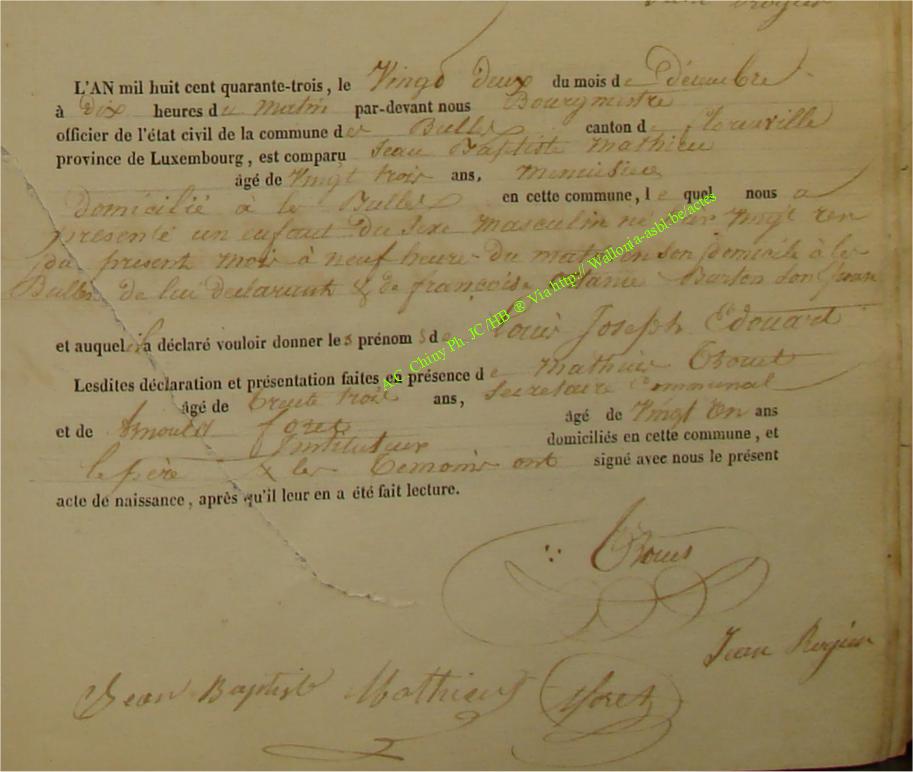 Jean Rogier
L'AN mil huit cent quarante-trois, le Vingd deux du mois de décembre
à Dix heures du matin par-devant nous Bourgmistre
officier de l'état civil de la commune des Bulles canton de florenville
province de Luxembourg, est comparu Jean Baptiste Mathieu
âgé de Vingt trois ans, menuisier
Domicilié à les Bulles en cette commune, le quel nous a
présenté un enfant du sexe masculin né hier Vingt un
du présent mois à neuf heure du matin en son domicile à les
Bulles de lui déclarant & de françoise Marie Burton son
et auquel il a déclaré vouloir donner les prénoms de louis Joseph Edouart
Lesdites déclaration et présentation faites en présence de Mathieu
âgé de Trente trois ans, secretaire Communal
et de Arnould foret âgé de Vingt Un ans
Instituteur domiciliés en cette commune, et
le père & les Temoins ont signé avec nous le présent
acte de naissance, après qu'il leur en a été fait lecture.
Jean Rogier
Jean Baptiste Mathieu foret
A.C. Chiny Ph. JC/HB ® Via http://Wallonia-asbl.be/actes